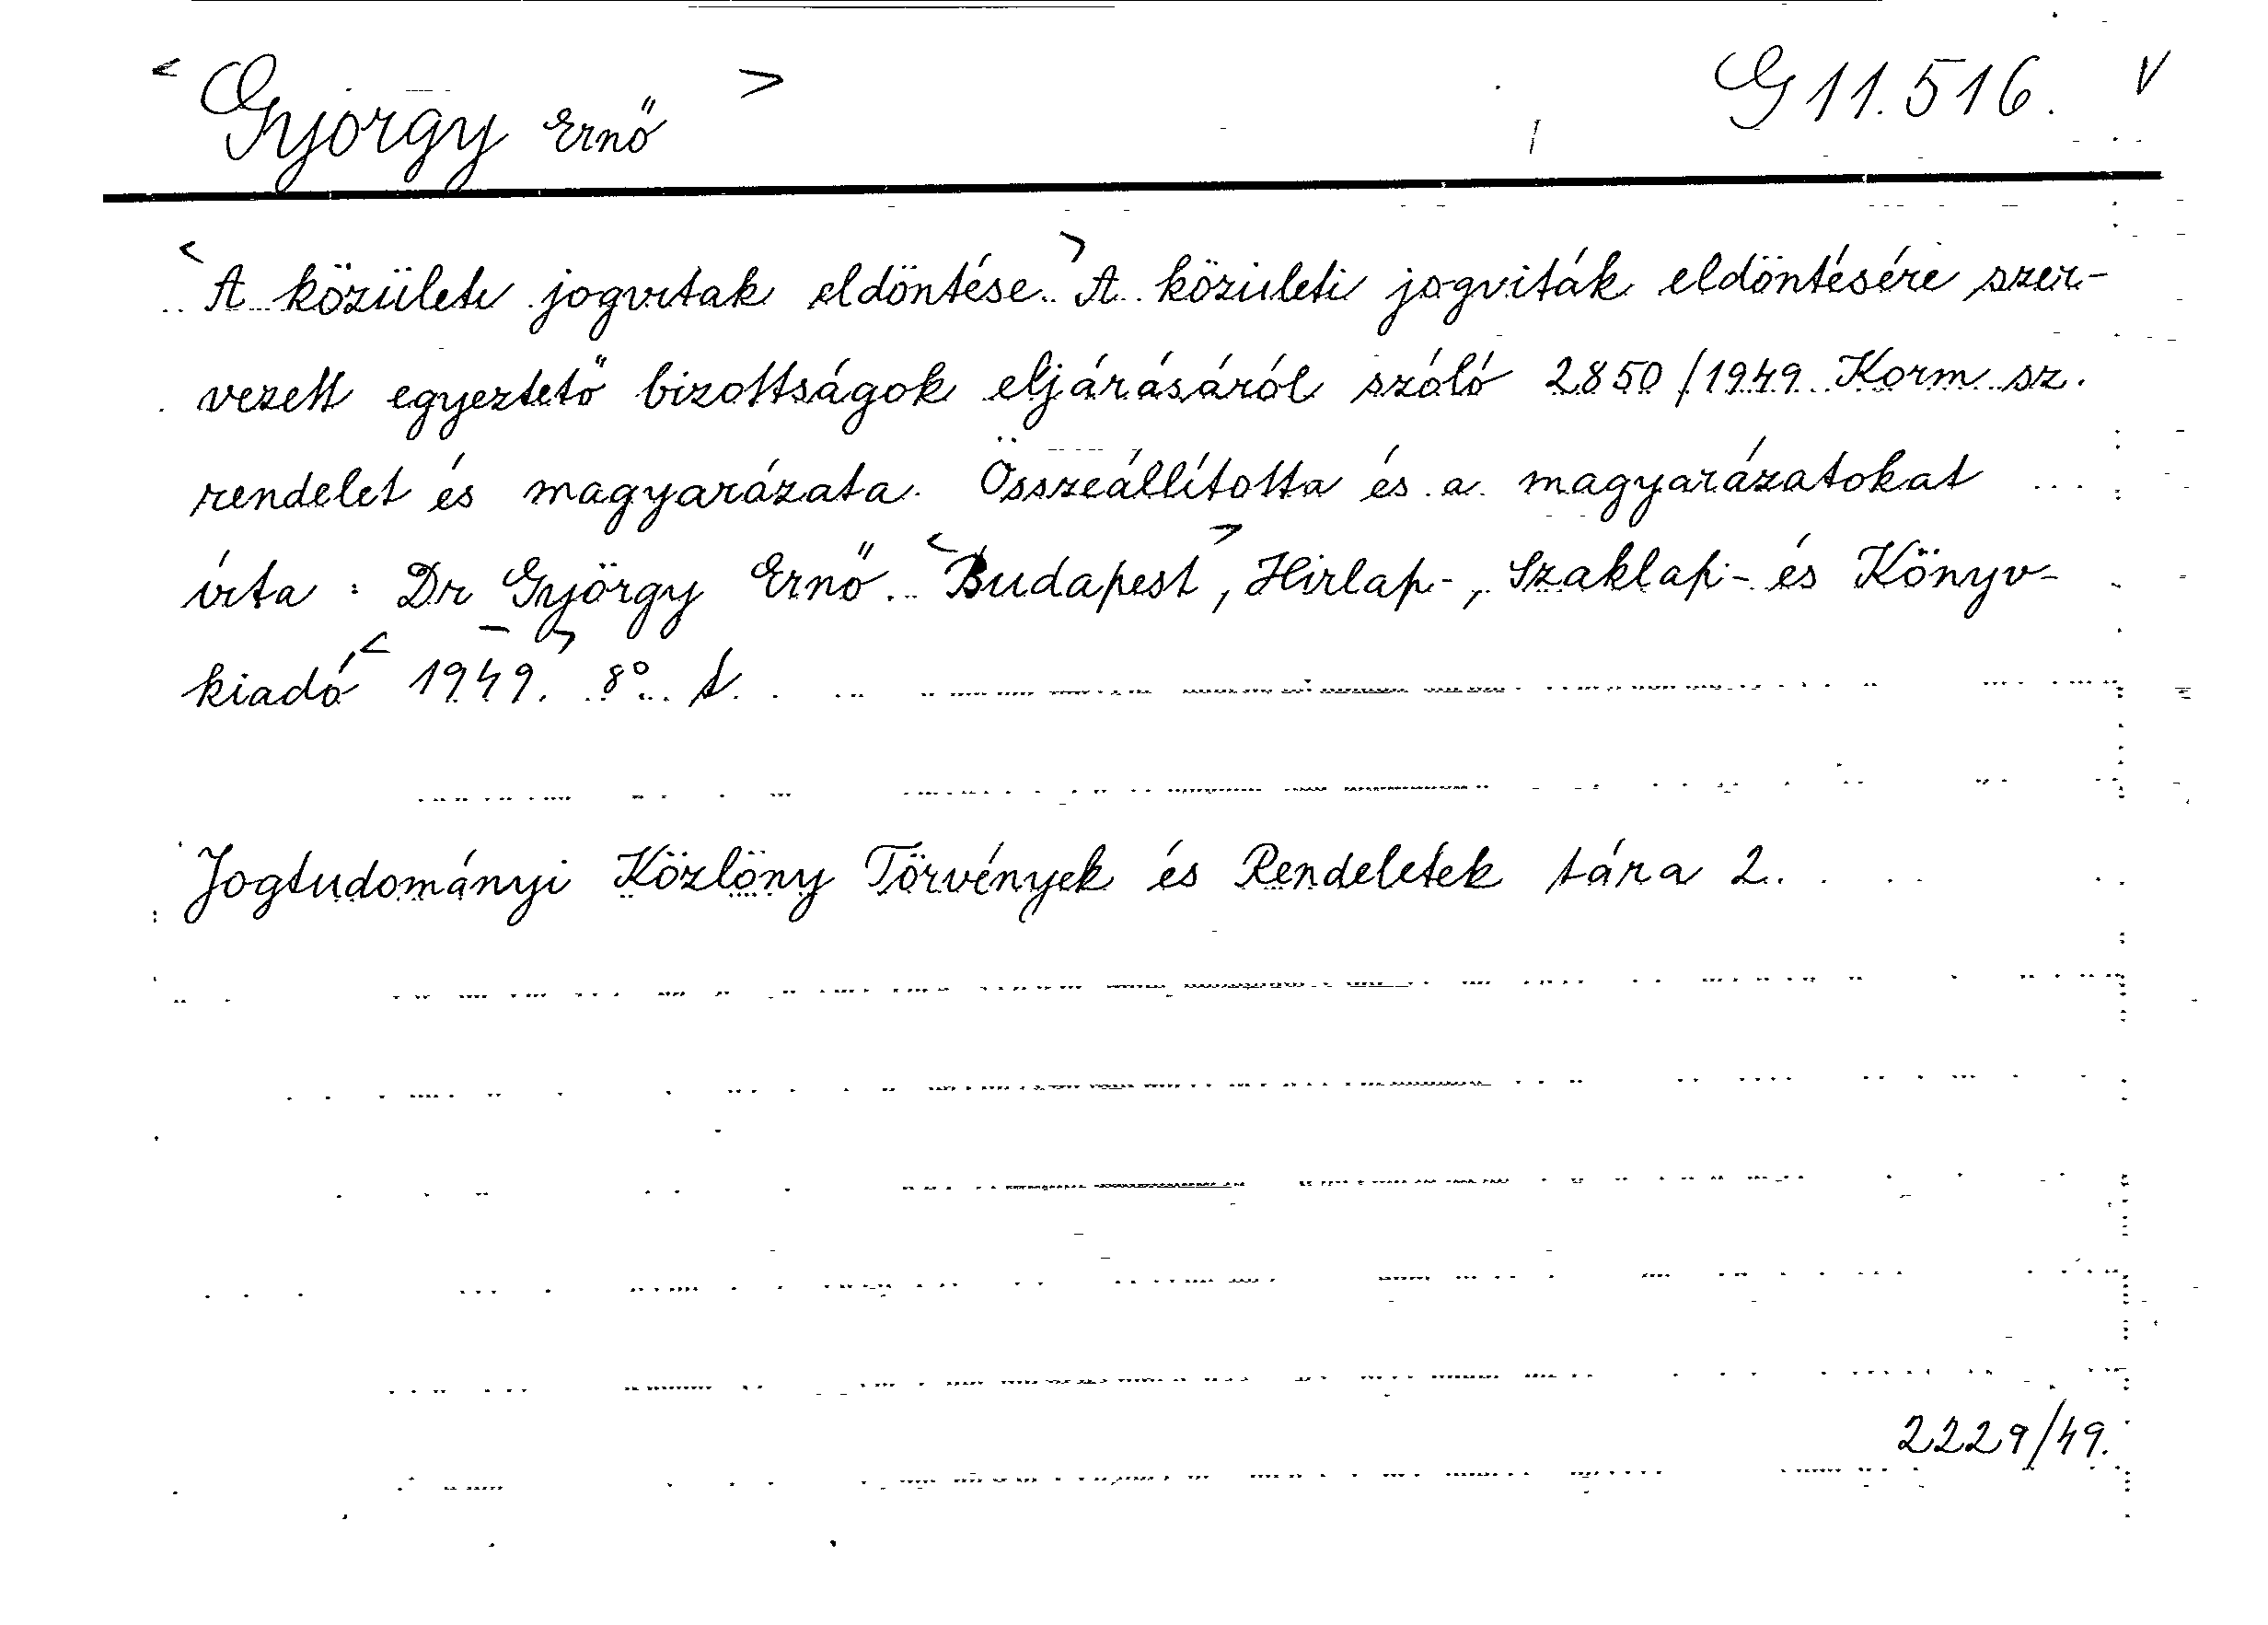 < György Ernő > G 11.516. √
< A közületi jogviták eldöntése. > A közületi jogviták eldöntésére szer-
vezett egyeztető bizottságok eljárásáról szóló 2850/1949 Korm sz.
rendelet és magyarázata. Összeállította és a magyarázatokat
írta: Dr György Ernő. <Budapest>, Hirlap-, Szaklap- és Könyv-
kiadó, <1949.> 8°.
Jogtudományi Közlöny Törvények és Rendeletek tára 2.
2229/49.